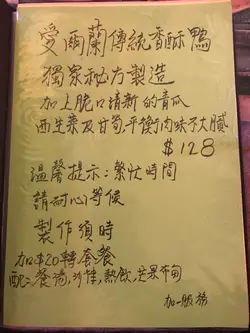 愛爾蘭傳統香酥鴨
獨家秘方製造
加上脆口清新的青瓜
西生菜及甘筍,平衡肉味不大膩
$128
溫馨提示:繁忙時間
請耐心等候
製作須時
加$20轉套餐
配:餐湯,沙律,熱飲,芒果布甸
加一服務